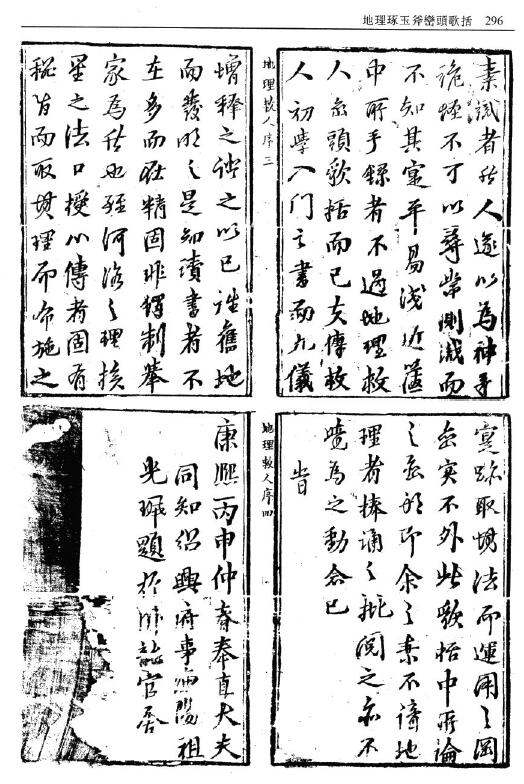 地理琢玉斧巒頭歌括 296
素識者於人遂以為神乎
不可以尋常測識而
不知其寔平易淺近篋
中所手錄者不過地理救
人巒頭歌括而已夫傳救
人初學入門之書而九儀
地理救人序三
增釋之證之以己註舊地
而發明之是知讀書者不
在多而在精固非獨制舉
家為然也河洛之理挨
星之法口授心傳者固有
秘旨而取理而布施之
寔跡取法而運用之罔
實不外此歌括中所論
之即余之素不諳地
理者捧誦之批閱之亦不
覺為之動念已
峕
地理救人序四
康熙丙申仲春奉直大夫
同知紹興府事瀋陽祖
題於官署